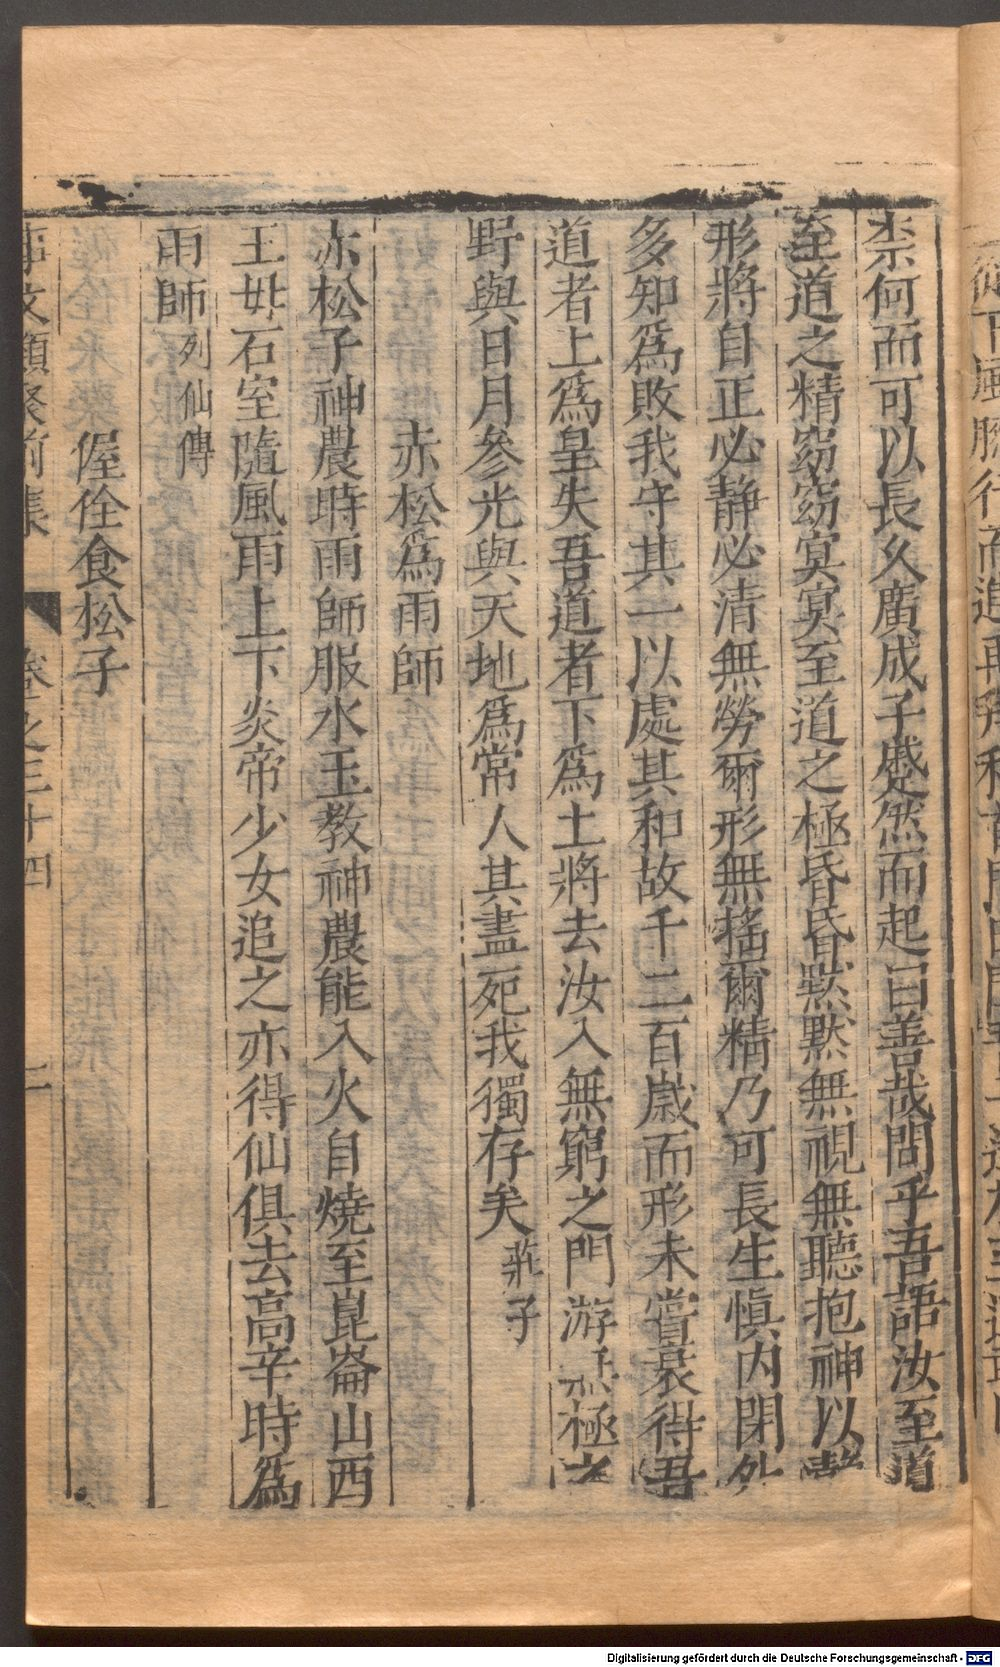 柰何而可以長久廣成子蹙然而起曰善哉問乎吾語汝至道
至道之精窈窈冥冥至道之極昏昏默默無視無聽抱神以靜
形將自正必静必清無勞爾形無搖爾精乃可長生慎内閉外
多知爲敗我守其一以處其和故千二百歲而形未嘗衰得吾
道者上爲皇失吾道者下爲土將去汝入無窮之門游无極之
野與日月參光與天地爲常人其盡死我獨存矣莊子
赤松爲雨師
赤松子神農時雨師服水玉教神農能入火自燒至崑崙山西
王母石室隨風雨上下炎帝少女追之亦得仙俱去高辛時爲
雨師列仙傳
偓佺食松子
事文類聚前集 卷之三十四
Digitalisierung gefördert durch die Deutsche Forschungsgemeinschaft - DFG